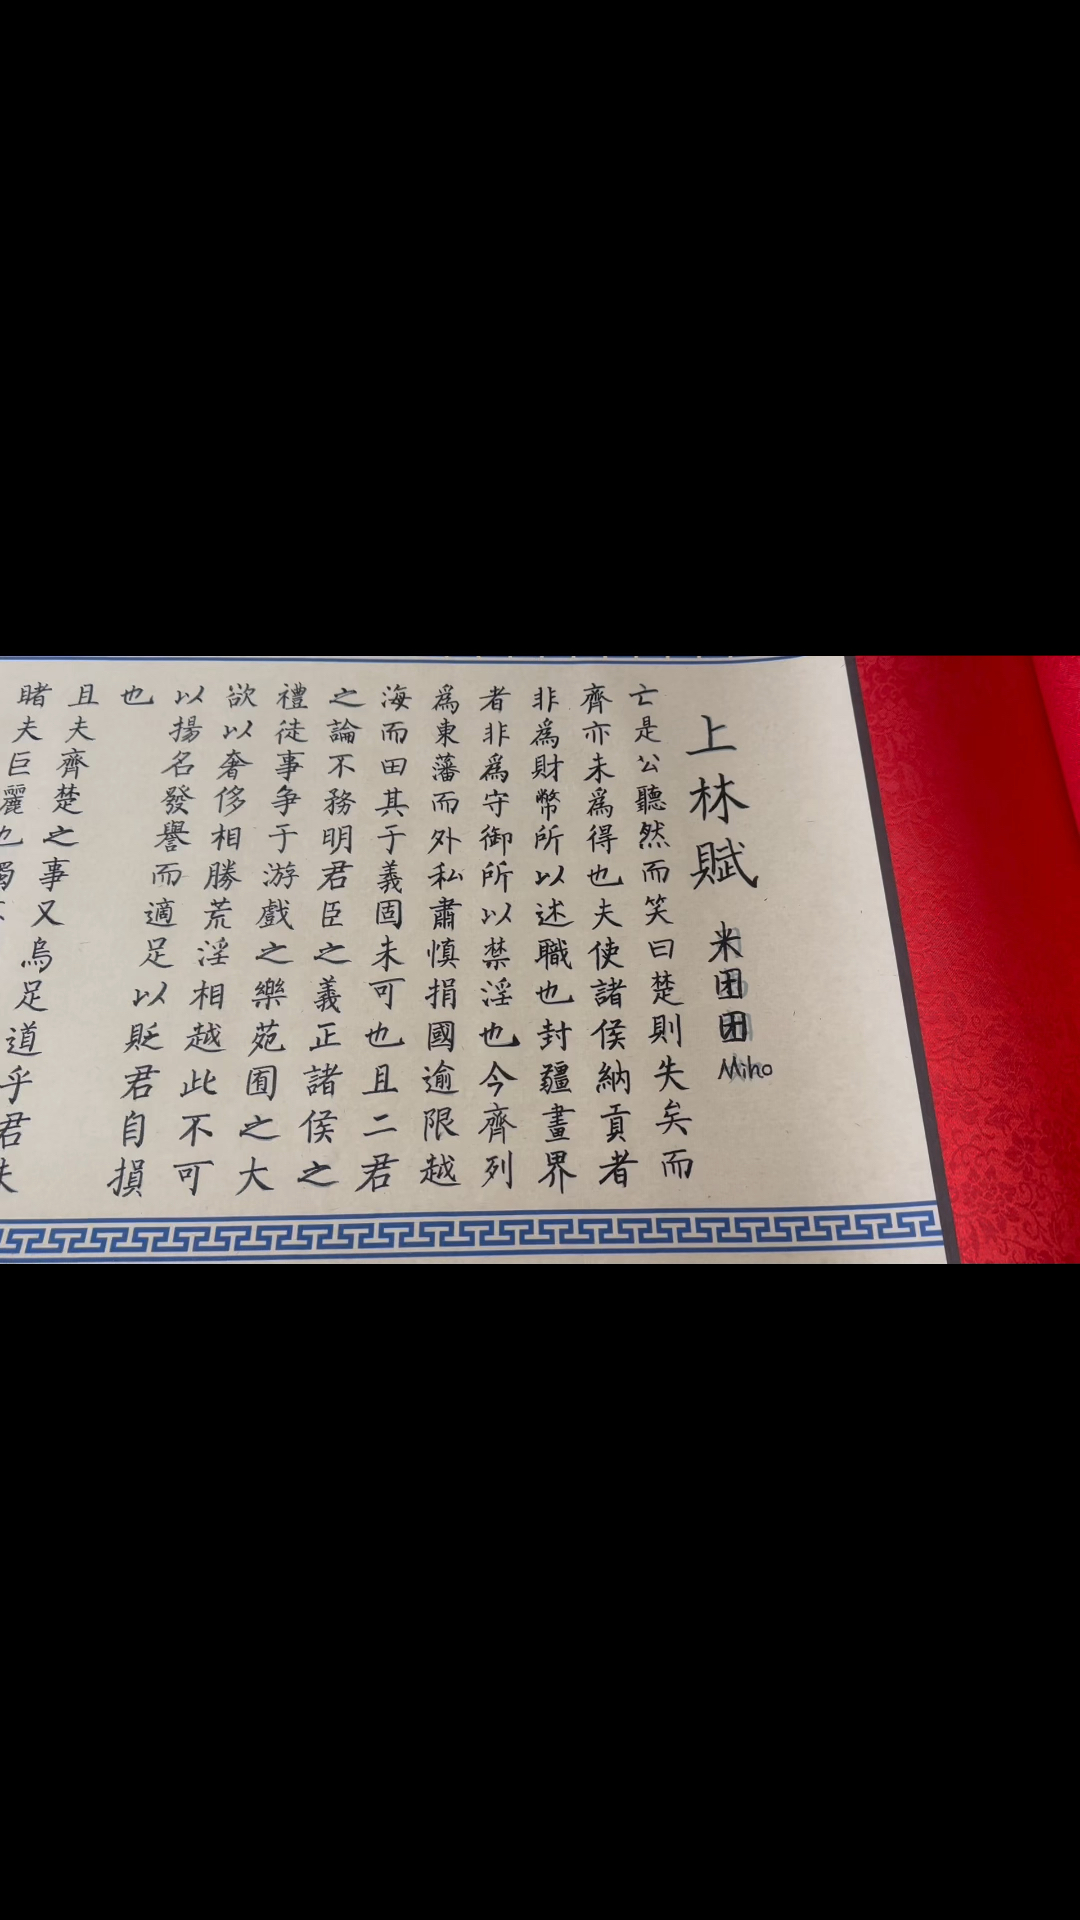 上林賦 米团团 Miho
亡是公聽然而笑曰楚則失矣而
齊亦未爲得也夫使諸侯納貢者
非爲財幣所以述職也封疆畫界
者非爲守御所以禁淫也今齊列
爲東藩而外私肅慎捐國逾限越
海而田其于義固未可也且二君
之論不務明君臣之義正諸侯之
禮徒事争于游戲之樂苑囿之大
欲以奢侈相勝荒淫相越此不可
以揚名發譽而適足以貶君自損
也
且夫齊楚之事又烏足道乎君
睹夫巨麗也